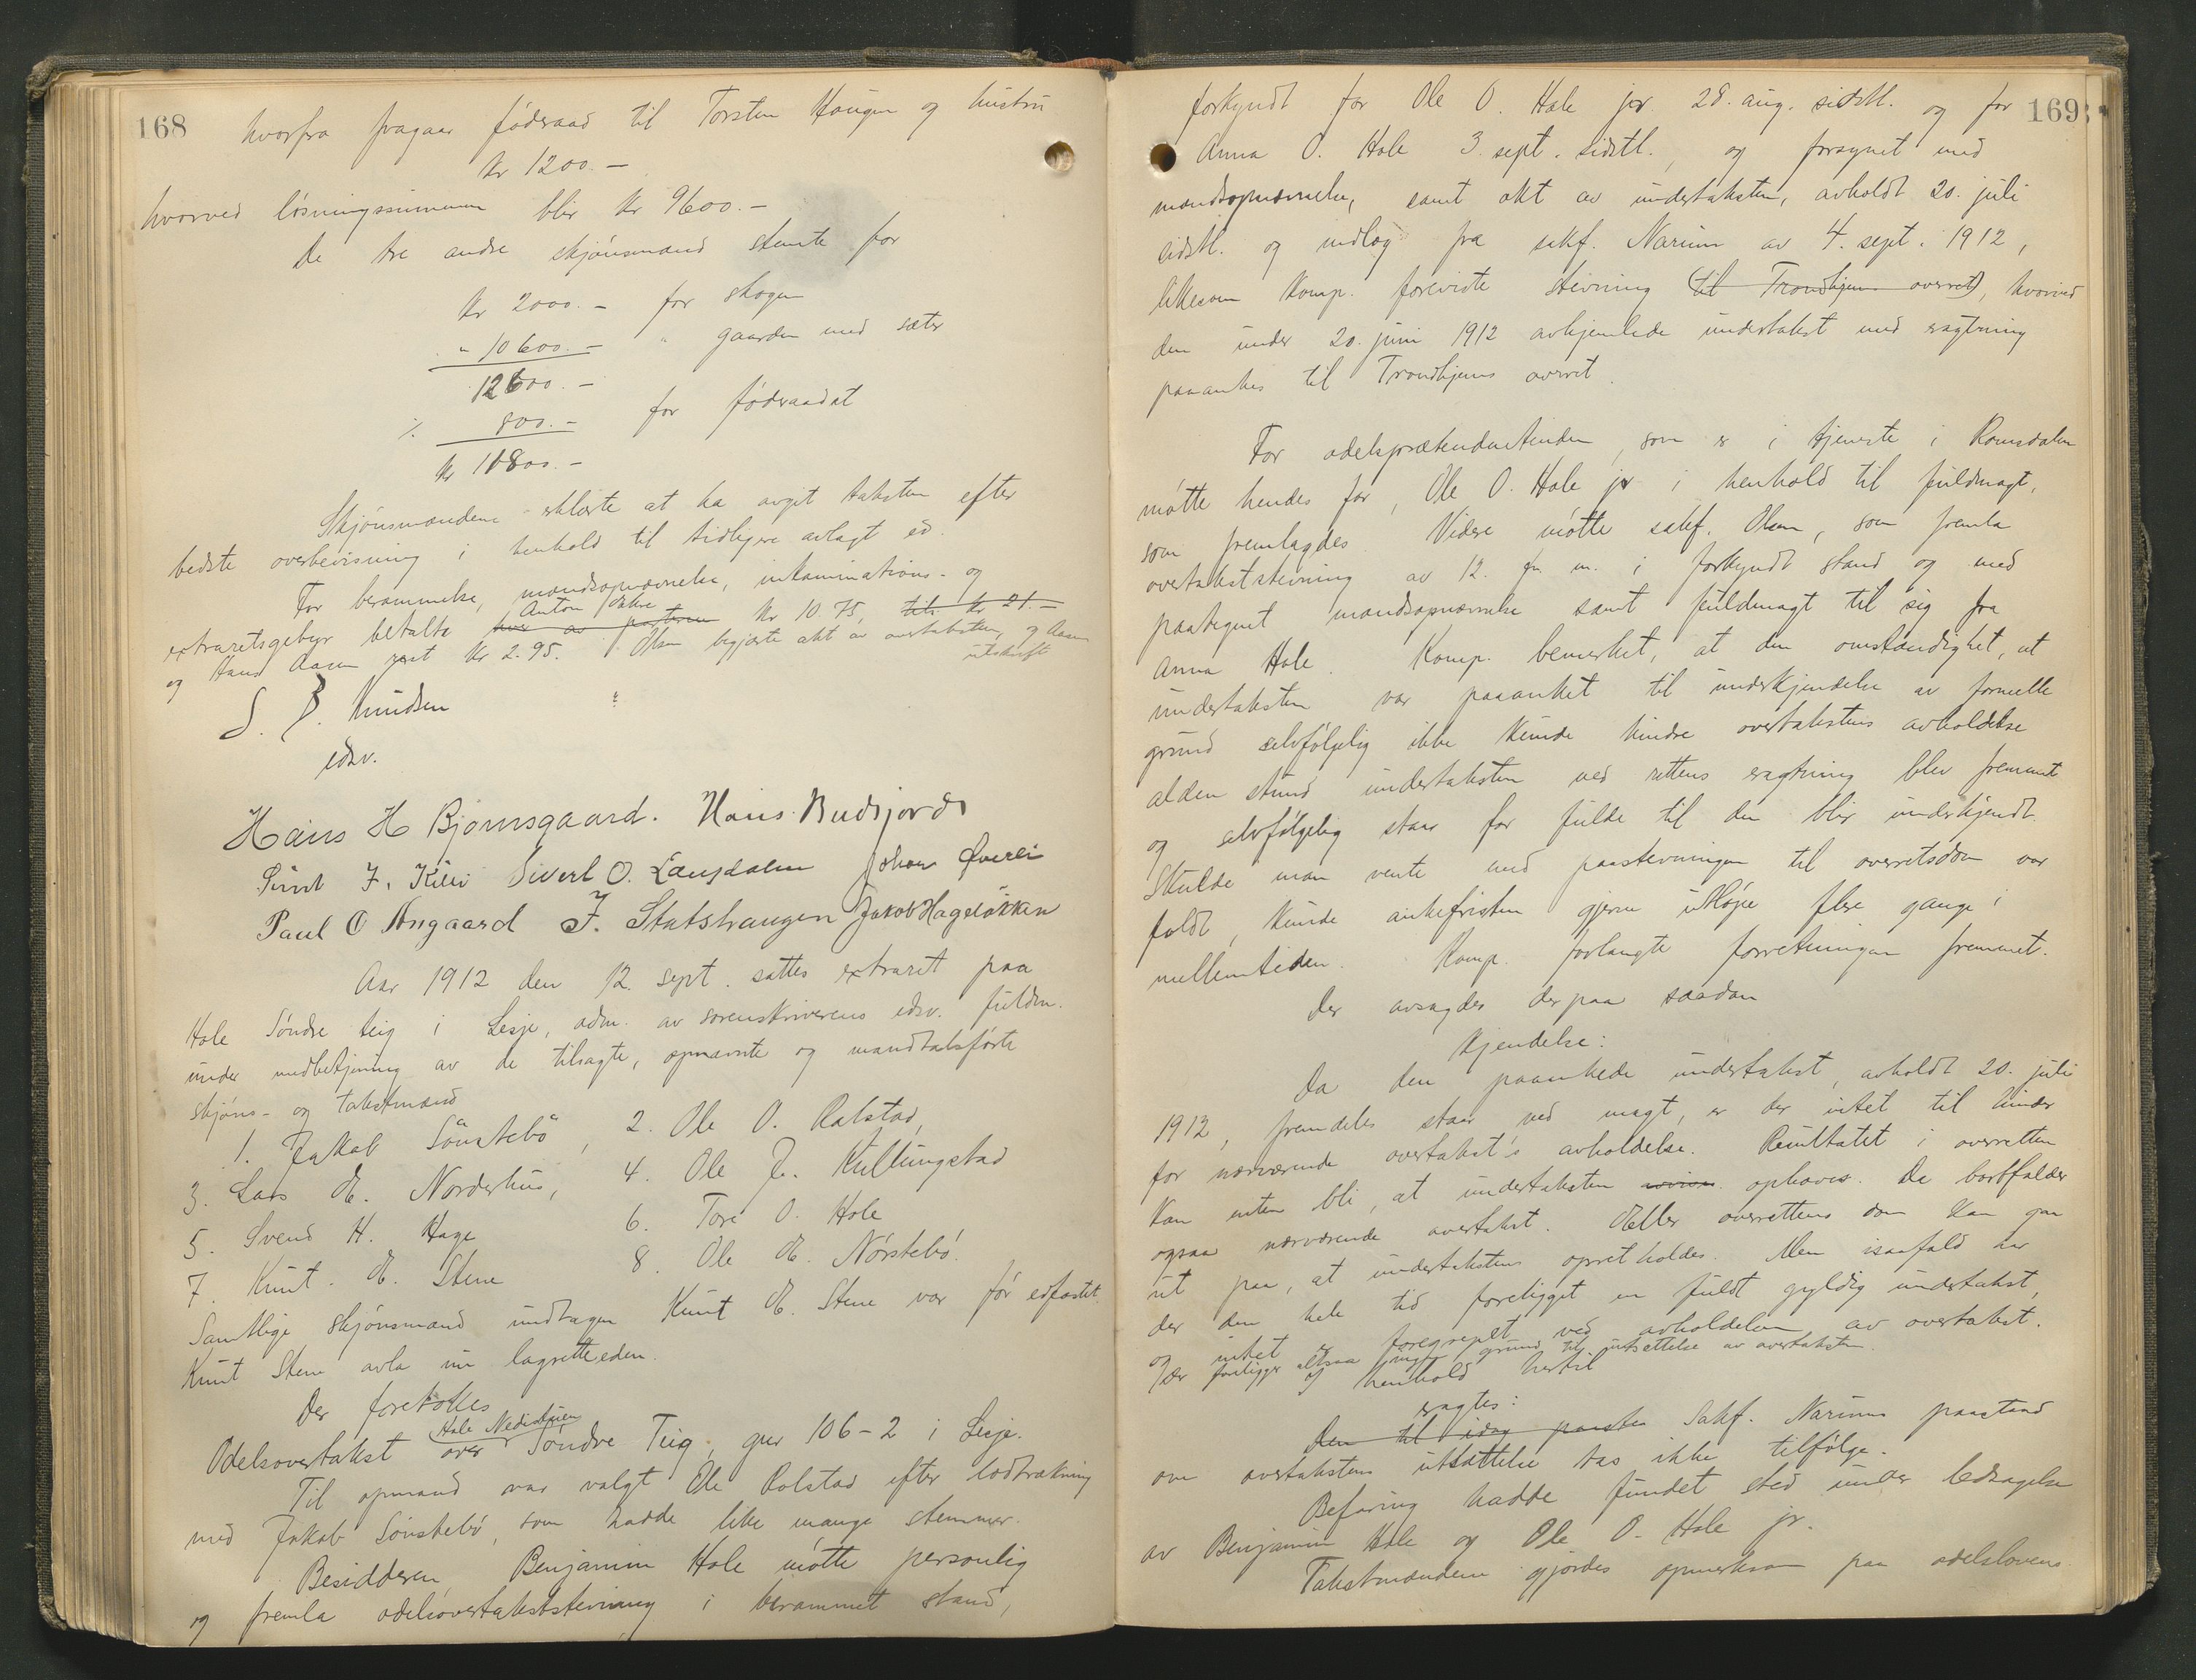 168
hvorfra fragaar føderaad til Torsten Haugen og hustru
kr 1200.—
hvorved løsningssummen blir kr 9600.—
De tre andre skjønsmænd stemte for
kr 2000.— for skogen
" 10600.— " gaarden med sæter
12600.—
÷ 800.— for føderaadet
kr 11800.—
Skjønsmændene erklærte at ha avgit taksten efter
bedste overbevisning i henhold til tidligere avlagt ed.
For berammelse, mandsopnævnelse, inkaminations- og
extraretsgebyr betalte hver av parterne Anton kr 10.75, tils. kr 21.—
og Hans Aasen rest kr 2.95. Olsen begjærte akt av overtaksten, og Aasen
utskrift
S. B. Knudsen
edsv.
Hans H Bjørnsgaard. Hans Budsjord
Sivert O. Langdalen Johan Øverli
Paul O Angaard J. Stutshaugen Jakob Hageløkken
Aar 1912 den 12. sept. sattes extraret paa
Hole Søndre teig i Lesje, adm. av sorenskriverens edsv. fuldm.
under medbetjening av de tilsagte, opnævnte og mandtalsførte
skjøns- og takstmænd
1. Jakob Sønstebø, 2. Ole O. Rolstad,
3. Lars E. Norderhus, 4. Ole J. Kullungstad
5. Svend H. Hage 6. Tore O. Hole
7. Knut E. Stene 8. Ole E. Nørstebø.
Samtlige skjønsmænd undtagen Knut E. Stene var før edfæstet.
Knut Stene avla nu lagretteeden.
Der foretokes
Hole Nedistuen
Odelsovertakst over Søndre Teig, gnr 106-2 i Lesje.
Til opmand var valgt Ole Rolstad efter lodtrækning
med Jakob Sønstebø, som hadde like mange stemmer.
Besidderen, Benjamin Hole møtte personlig
og fremla odelsovertakststevning i berammet stand,
169
forkyndt for Ole O. Hole jr. 28. aug. sidstl. og for
Anna O. Hole 3. sept. sidstl., og forsynet med
mandsopnævnelse, samt akt av undertaksten, avholdt 20. juli
sidstl. og indlæg fra sakf. Narum av 4. sept. 1912,
likesom komp. foreviste stevning (til Trondhjems overret), hvorved
den under 20. juni 1912 avhjemlede undertakst med eragtning
paaankes til Trondhjems overret.
For odelsprætendentinden, som er i tjeneste i Romsdalen
møtte hendes far, Ole O. Hole jr i henhold til fuldmagt,
som fremlagdes. Videre møtte sakf. Olsen, som fremla
overtakststevning av 12. f. m. i forkyndt stand og med
paategnet mandsopnævnelse samt fuldmagt til sig fra
Anna Hole. Komp. bemerket, at den omstændighet, at
undertaksten var paaanket til underkjendelse av formelle
grund selvfølgelig ikke kunde hindre overtakstens avholdelse
alden stund undertaksten ved rettens eragtning blev fremmet
og selvfølgelig staar for fulde til den blir underkjendt.
Skulde man vente med paastevningen til overretsdom var
faldt, kunde ankefristen gjerne utløpe flere gange i
mellemtiden. Komp. forlangte forretningen fremmet.
Der avsagdes derpaa saadan
Kjendelse:
Da den paaankede undertakst, avholdt 20. juli
1912, fremdeles staar ved magt, er der intet til hinder
for nærværende overtakst's avholdelse. Resultatet i overretten
kan enten bli, at undertaksten opheves. Da bortfalder
ogsaa nærværende overtakst. Eller overrettens dom kan gaa
ut paa, at undertaksten opretholdes. Men isaafald har
der den hele tid foreligget en fuldt gyldig undertakst,
og intet er foregrepet ved avholdelsen av overtakst.
Der foreligger altsaa ingen grund til utsættelse av overtaksten.
I henhold hertil
eragtes:
Den til idag paasta Sakf. Narums paastand
om overtakstens utsættelse tas ikke tilfølge.
Befaring hadde fundet sted under ledsagelse
av Benjamin Hole og Ole O. Hole jr.
Takstmændene gjordes opmerksom paa odelslovens